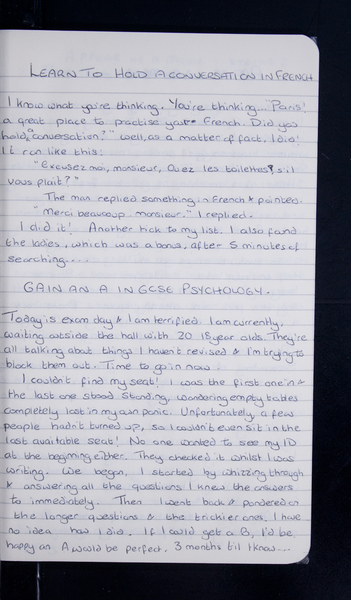 LEARN TO HOLD A CONVERSATION IN FRENCH
I know what you're thinking. You're thinking... "Paris!
a great place to practise your French. Did you
hold a conversation?" Well, as a matter of fact, I did!
It ran like this:
"Excusez moi, monsieur, Ouez les toilettes, s'il
vous plait?"
The man replied something in French & pointed.
"Merci beaucoup monsieur." I replied.
I did it! Another tick to my list. I also found
the ladies, which was a bonus, after 5 minutes of
searching....
GAIN AN A IN GCSE PSYCHOLOGY.
Today is exam day & I am terrified. I am currently
waiting outside the hall with 20 18 year olds. They're
all talking about things I haven't revised & I'm trying to
block them out. Time to go in now.
I couldn't find my seat! I was the first one in &
the last one stood standing, wondering empty tables
completely lost in my own panic. Unfortunately, a few
people hadn't turned up, so I couldn't even sit in the
last available seat! No one wanted to see my ID
at the beginning either. They checked it whilst I was
writing. We began. I started by whizzing through
& answering all the questions I knew the answers
to immediately. Then I went back & pondered on
the longer questions & the trickier ones. I have
no idea how I did. If I could get a B, I'd be
happy an A would be perfect. 3 months til I know...